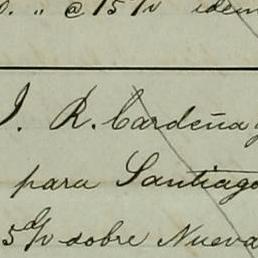 " @ 15 d/v idem
J. R. Cardeña y
para Santiago
5 d/v sobre Nueva